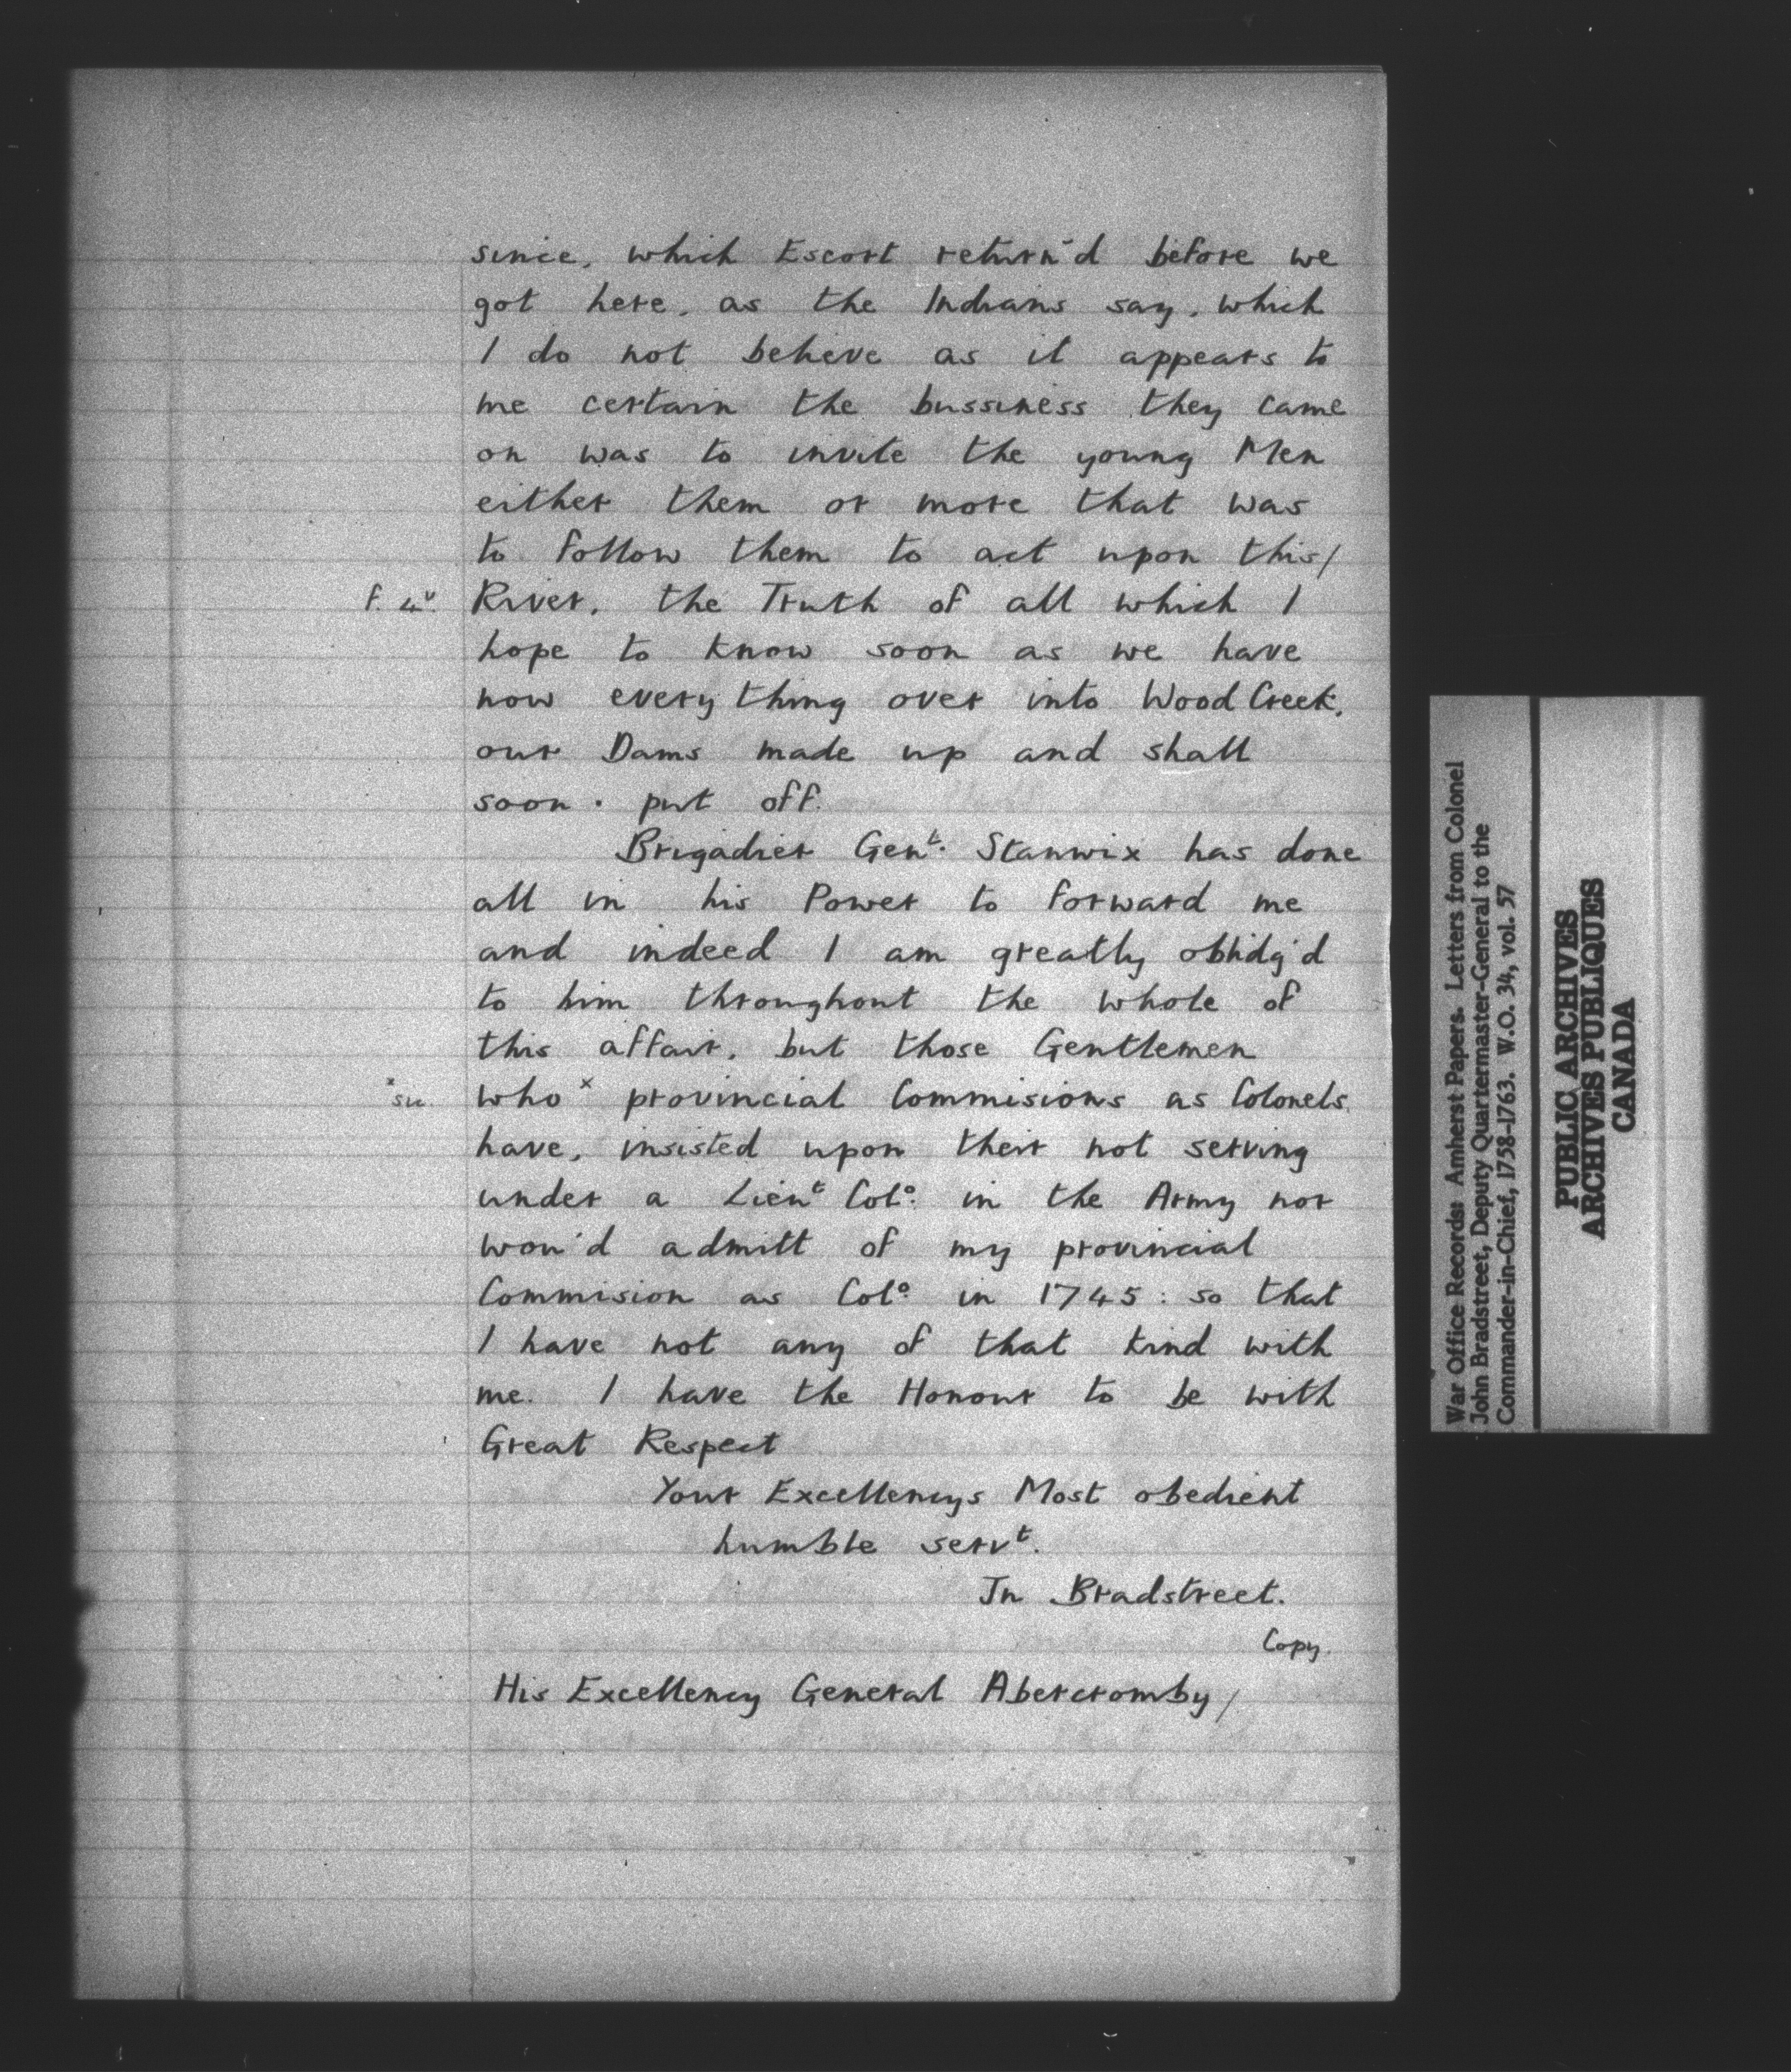 since, which Escort return'd before we
got here, as the Indians say, which
I do not believe as it appears to
me certain the bussiness they came
on was to invite the young Men
either them or more that was
to follow them to act upon this/
f. 4v. River, the Truth of all which I
hope to know soon as we have
now every thing over into Wood Creek,
our Dams made up and shall
soon. put off.
Brigadier Genl. Stanwix has done
all in his Power to forward me
and indeed I am greatly oblidg'd
to him throughout the whole of
this affair, but those Gentlemen
x sic. who x provincial Commisions as Colonels
have, insisted upon their not serving
under a Lieut Colo. in the Army nor
wou'd admitt of my provincial
Commision as Colo. in 1745: so that
I have not any of that kind with
me. I have the Honour to be with
Great Respect
Your Excellencys Most obedient
humble servt.
Jn Bradstreet.
Copy.
His Excellency General Abercromby/
War Office Records: Amherst Papers. Letters from Colonel
John Bradstreet, Deputy Quartermaster-General to the
Commander-in-Chief, 1758-1763. W.O. 34, vol. 57
PUBLIC ARCHIVES
ARCHIVES PUBLIQUES
CANADA